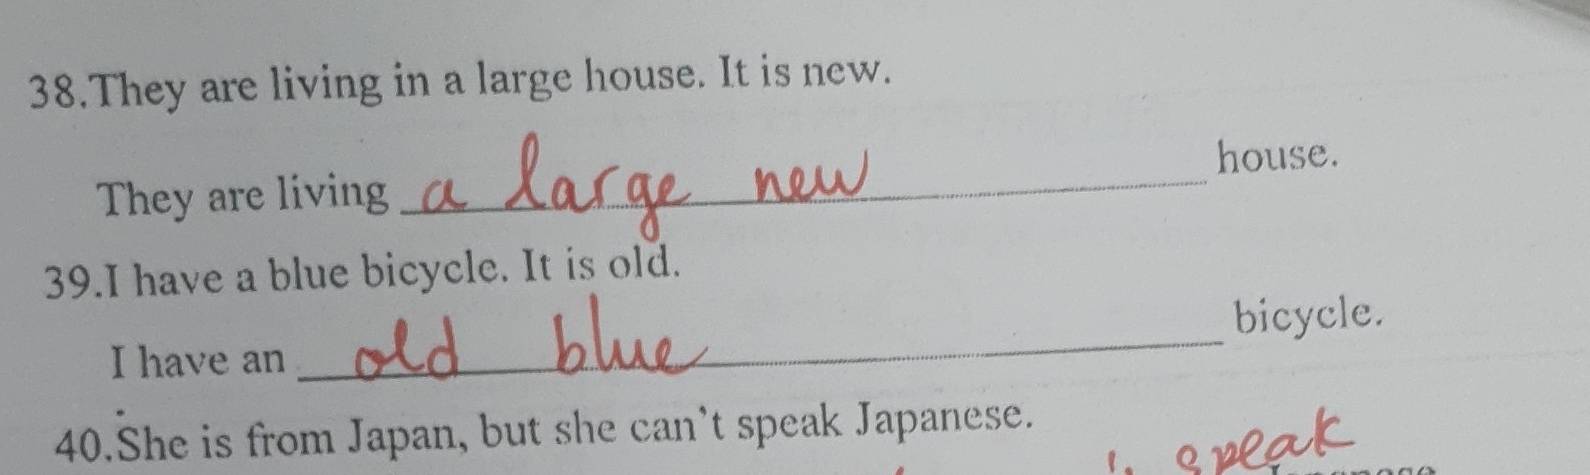 38.They are living in a large house. It is new.
They are living a large new house.
39.I have a blue bicycle. It is old.
I have an old blue bicycle.
40.She is from Japan, but she can't speak Japanese.
speak